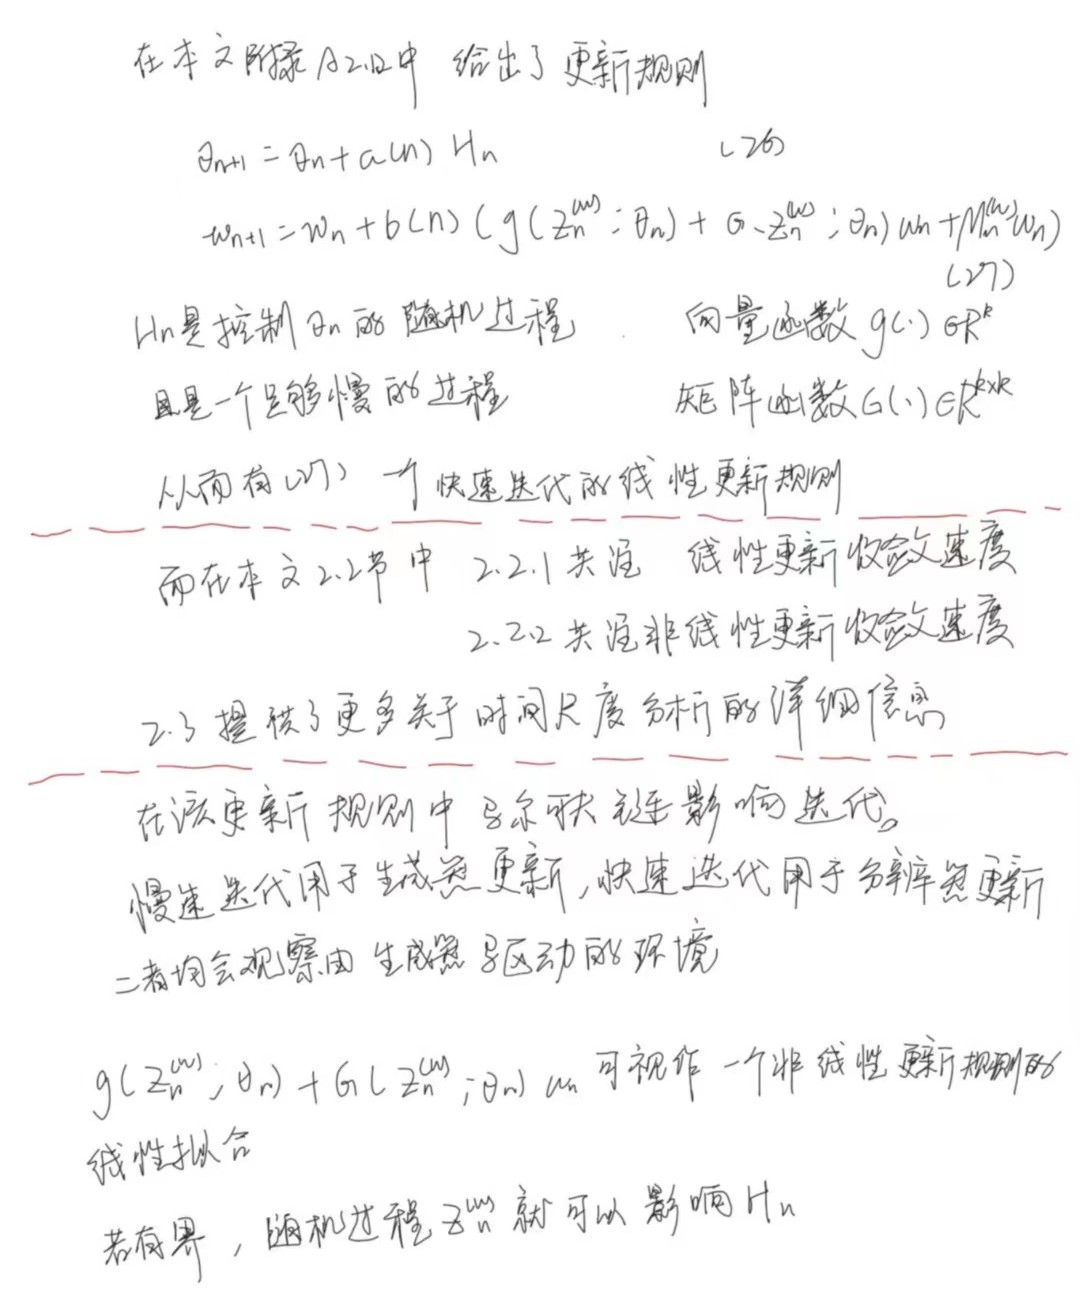 在本文附录A2.1.2中 给出了更新规则
θn+1 = θn + a(n) Hn (26)
wn+1 = wn + b(n) ( g(Zn^(w) ; θn) + G(Zn^(w) ; θn) wn + Mn^(w) wn )
(27)
Hn是控制θn的随机过程 . 向量函数 g(·) ∈R^k
且是一个足够慢的过程 矩阵函数 G(·) ∈R^k×k
从而有(27) 一个快速迭代的线性更新规则
而在本文2.2节中 2.2.1 关注 线性更新收敛速度
2.2.2 关注非线性更新收敛速度
2.3 提供了更多关于时间尺度分析的详细信息
在该更新规则中马尔可夫链影响迭代。
慢速迭代用于生成器更新，快速迭代用于分辨器更新
二者均会观察由生成器驱动的环境
g(Zn^(w) ; θn) + G( Zn^(w) ; θn) wn 可视作一个非线性更新规则的
线性拟合
若有界，随机过程 Zn^(w) 就可以影响 Hn